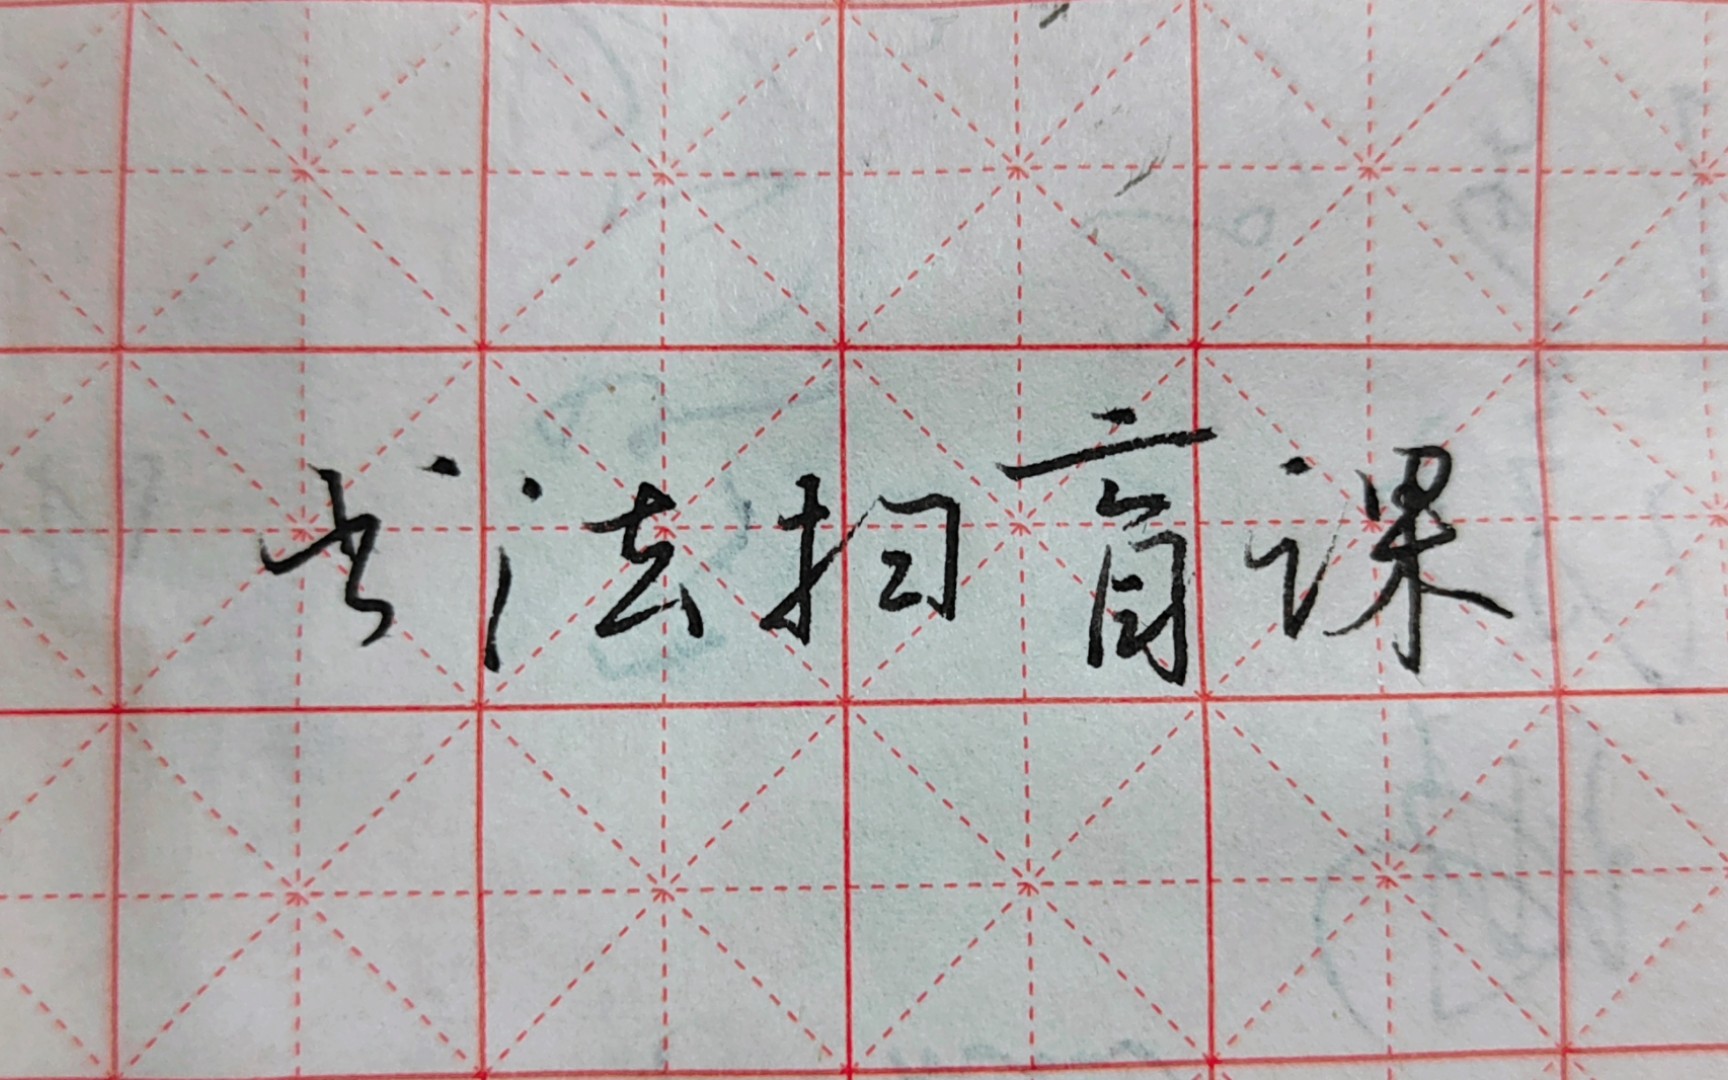 书法扫盲课